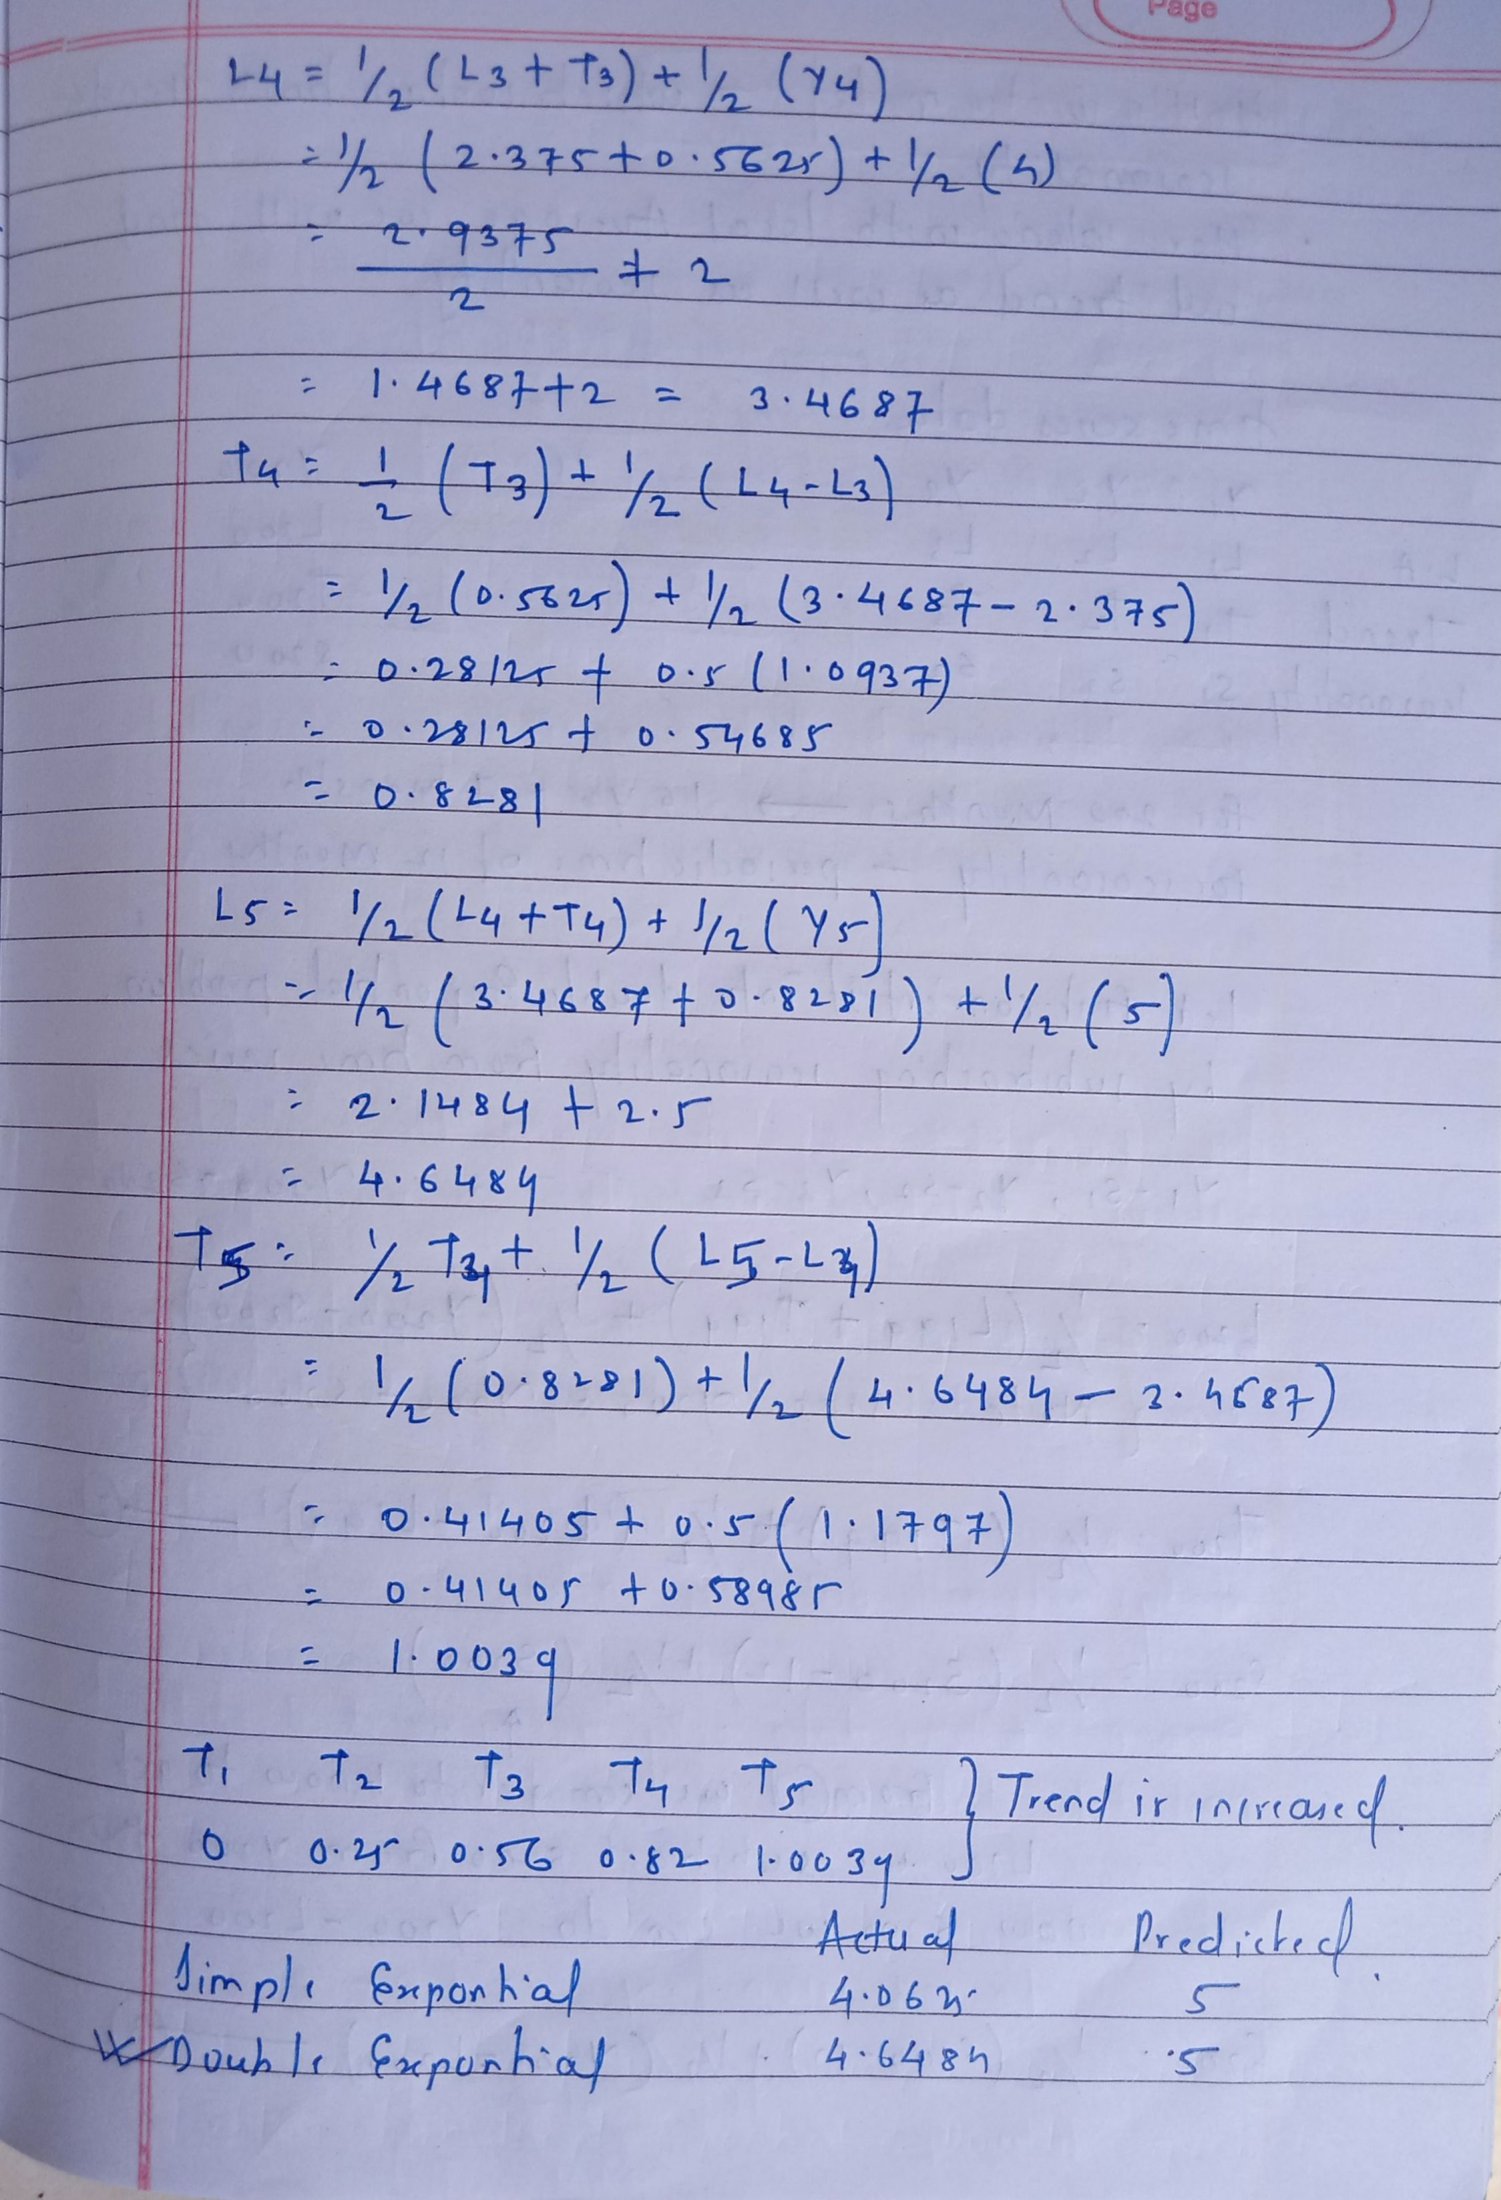 Page
L4 = 1/2 (L3 + T3) + 1/2 (Y4)
= 1/2 (2.375 + 0.5625) + 1/2 (4)
= 2.9375/2 + 2
= 1.4687 + 2 = 3.4687
T4 = 1/2 (T3) + 1/2 (L4 - L3)
= 1/2 (0.5625) + 1/2 (3.4687 - 2.375)
= 0.28125 + 0.5 (1.0937)
= 0.28125 + 0.54685
= 0.8281
L5 = 1/2 (L4 + T4) + 1/2 (Y5)
= 1/2 (3.4687 + 0.8281) + 1/2 (5)
= 2.1484 + 2.5
= 4.6484
T5 = 1/2 T4 + 1/2 (L5 - L4)
= 1/2 (0.8281) + 1/2 (4.6484 - 3.4687)
= 0.41405 + 0.5 (1.1797)
= 0.41405 + 0.58985
= 1.0039
T1 T2 T3 T4 T5 } Trend is increased.
0 0.25 0.56 0.82 1.0039
Actual Predicted.
Simple Expontial 4.0625 5
Double Expontial 4.6484 5